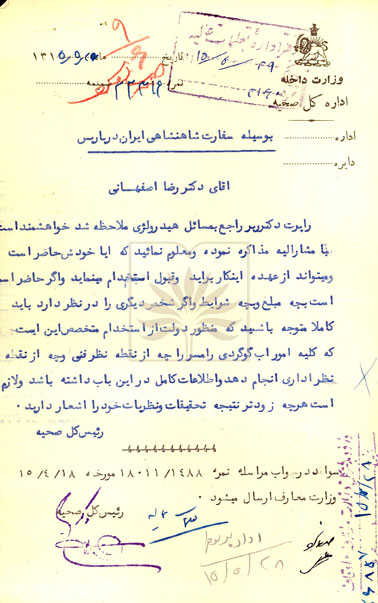 وزارت داخله
اداره کل صحیه
اداره
دایره
تاریخ ماه ۱۳۱۵
نمره ضمیمه
بوسیله سفارت شاهنشاهی ایران در پاریس
آقای دکتر رضا اصفهانی
راپرت دکتر راجع بمسائل هیدرولژی ملاحظه شد خواهشمند است
با مشارالیه مذاکره نموده ومعلوم نمائید که ایا خودش حاضر است
ومیتواند از عهده اینکار براید وقبول استخدام مینماید واگر حاضر است
است بچه مبلغ وبچه شرایط واگر شخص دیگری را در نظر دارد باید
کاملا متوجه باشید که منظور دولت از استخدام متخصص این است
که کلیه امور اب گوگردی رامسر را چه از نقطه نظر فنی وچه از نقطه
نظر اداری انجام دهد واطلاعات کامل در این باب داشته باشد ولازم
است هرچه زودتر نتیجه تحقیقات ونظریات خود را اشعار دارید ۰
رئیس کل صحیه
سواد در جواب مراسله نمره ۱۸۰۱۱/۱۴۸۸ مورخه ۱۵/۴/۱۸
وزارت معارف ارسال میشود ۰
رئیس کل صحیه
۱۵/۵/۲۸